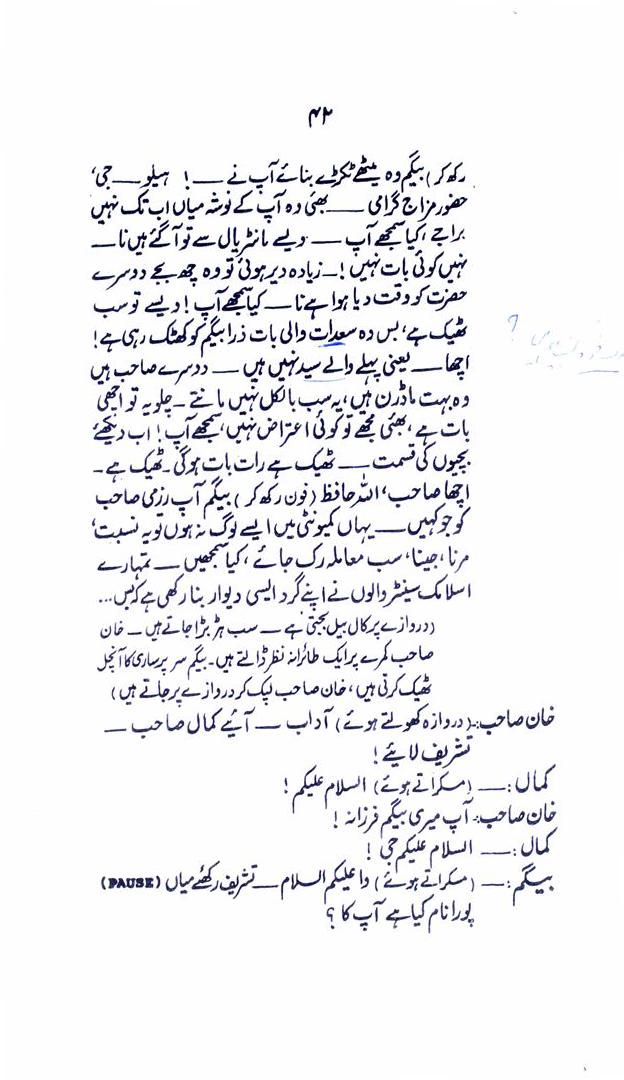 ۴۲
رکھ کر) بیگم وہ میٹھے ٹکڑے بنائے آپ نے ــــ ! ہیلو ــــ جی،
حضور مزاج گرامی ــــ بھئی وہ آپ کے نوشہ میاں اب تک نہیں
براجے، کیا سمجھے آپ ــــ ویسے مانٹریال سے تو آ گئے ہیں نا ــــ
نہیں کوئی بات نہیں ! ــ زیادہ دیر ہوئی تو وہ چھ بجے دوسرے
حضرت کو وقت دیا ہوا ہے نا ــــ کیا سمجھے آپ ! ویسے تو سب
ٹھیک ہے، بس وہ سعدات والی بات ذرا بیگم کو کھٹک رہی ہے !
اچھا ــــ یعنی پہلے والے سید نہیں ہیں ــــ دوسرے صاحب ہیں
وہ بہت ماڈرن ہیں، یہ سب بالکل نہیں مانتے ــ چلو یہ تو اچھی
بات ہے، بھئی مجھے تو کوئی اعتراض نہیں، سمجھے آپ ! اب دیکھئے
بچیوں کی قسمت ــــ ٹھیک ہے رات بات ہوگی ــ ٹھیک ہے ــ
اچھا صاحب، اللہ حافظ (فون رکھ کر) بیگم آپ رزمی صاحب
کو جو کہیں ــــ یہاں کمیونٹی میں ایسے لوگ نہ ہوں تو یہ نسبت،
مرنا، جینا، سب معاملہ رک جائے، کیا سمجھیں ــــ تمہارے
اسلامک سینٹر والوں نے اپنے گرد ایسی دیوار بنا رکھی ہے کہ بس...
(دروازے پر کال بیل بجتی ہے ــــ سب ہڑبڑا جاتے ہیں ــ خان
صاحب کمرے پر ایک طائرانہ نظر ڈالتے ہیں ــ بیگم سر پر ساری کا آنچل
ٹھیک کرتی ہیں، خان صاحب لپک کر دروازے پر جاتے ہیں)
خان صاحب:ـ (دروازہ کھولتے ہوئے) آداب ــــ آیئے کمال صاحب ــــ
تشریف لایئے !
کمال: ــــ (مسکراتے ہوئے) السلام علیکم !
خان صاحب:ـ آپ میری بیگم فرزانہ !
کمال: ــــ السلام علیکم جی !
بیگم: ــــ (مسکراتے ہوئے) واعلیکم السلام ــــ تشریف رکھئے میاں (PAUSE)
پورا نام کیا ہے آپ کا ؟
؟